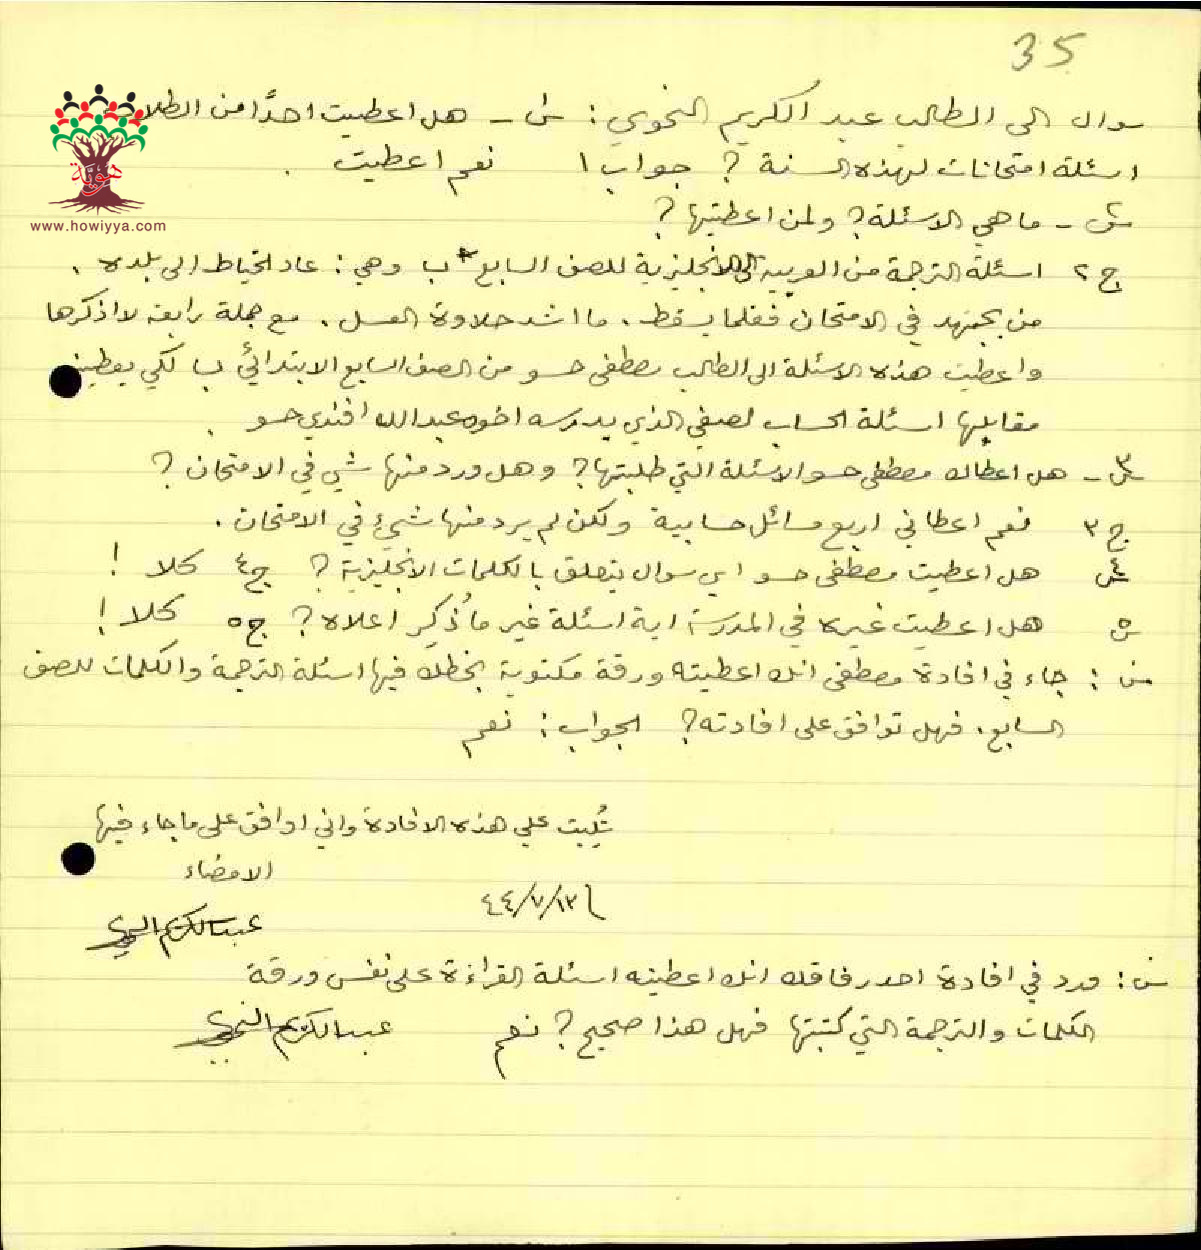 35
هوية
www.howiyya.com
سوال الى الطالب عبد الكريم النحوي : س١ - هل اعطيت احدًا من الطلاب
اسئلة امتحانات لهذه السنة ؟ جواب ١ نعم اعطيت .
س٢ - ما هي الاسئلة ؟ ولمن اعطيتها ؟
ج ٢ اسئلة الترجمة من العربية الى الانجليزية للصف السابع ب وهي : عاد الخياط الى بلده .
من يجتهد في الامتحان فقلما يسقط . ما اشد حلاوة العسل . مع جملة رابعة لا اذكرها
واعطيت هذه الاسئلة الى الطالب مصطفى حسو من الصف السابع الابتدائي ب لكي يعطيني
مقابلها اسئلة الحساب لصفي الذي يدرسه اخوه عبدالله افندي حسو .
س٣ - هل اعطاك مصطفى حسو الاسئلة التي طلبتها ؟ وهل ورد منها شي في الامتحان ؟
ج ٣ نعم اعطاني اربع مسائل حسابية ولكن لم يرد منها شيء في الامتحان .
س٤ هل اعطيت مصطفى حسو اي سوال يتعلق بالكلمات الانجليزية ؟ ج٤ كلا !
س٥ هل اعطيت غيره في المدرسة اية اسئلة غير ما ذُكر اعلاه ؟ ج٥ كلا !
س : جاء في افادة مصطفى انك اعطيته ورقة مكتوبة بخطك فيها اسئلة الترجمة والكلمات للصف
السابع . فهل توافق على افادته ؟ الجواب : نعم
تُليت علي هذه الافادة واني اوافق على ما جاء فيها
الامضاء
٤٤/٧/١٢
عبدالكريم النحوي
س : ورد في افادة احد رفاقك انك اعطيته اسئلة القراءة على نفس ورقة
الكلمات والترجمة التي كتبتها فهل هذا صحيح ؟ نعم عبدالكريم النحوي